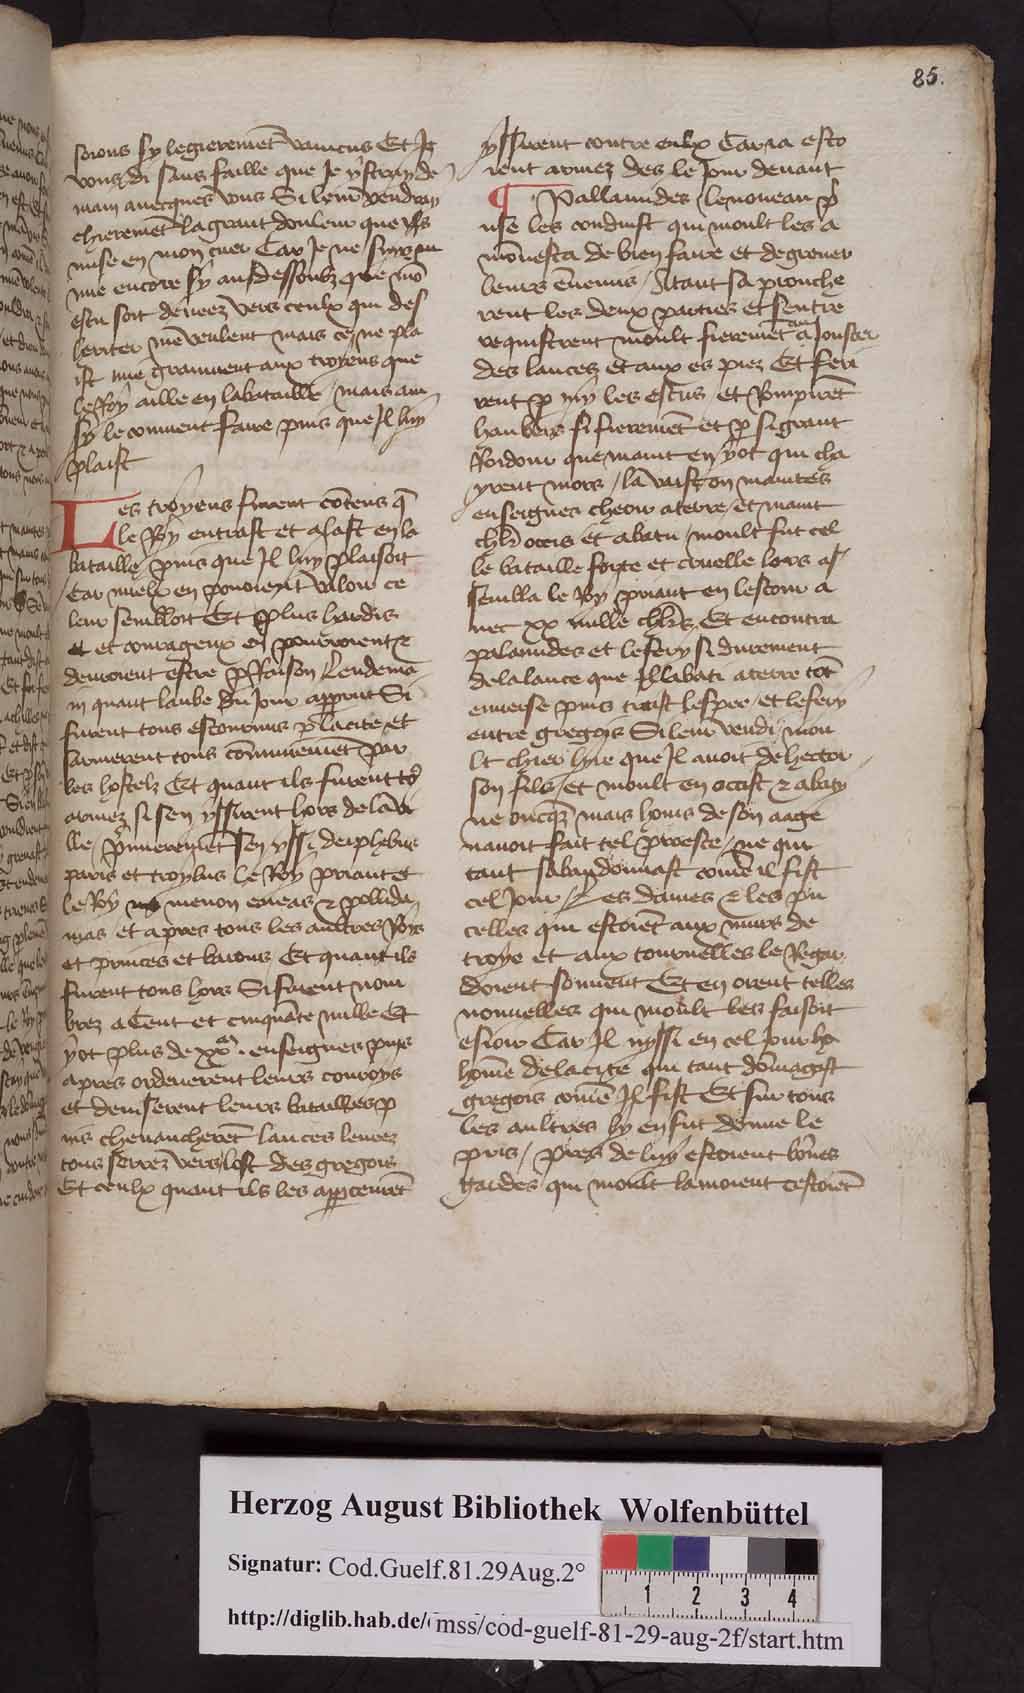 85.
serons sy legierement vaincus Et Je
vous di sans faille que Je ystray de
main avecques vous Si leur vendray
chierement la grant douleur que ilz
mise en mon cuer Car Je ne suys
mie encore sy au dessoubz que mon
escu soit deveez vers ceulx qui des
heriter me veulent mais ce ne pla
ist mie gramment aux troyens que
le Roy aille en la bataille / mais ain
sy le convient faire puis que Il luy
plaist
Les troyens furent contens que
le Roy entrast et alast en la
bataille puis que Il luy plaisoit
Car mielx en pouroient valoir ce
leur sembloit Et plus hardis
et et courageux en pourroient
devroient estre par Raison Lendema
in quant laube du Jour apparut Si
furent tous estourmis par la cite et
sarmerent tous communement par
les hostelz Et quant ils furent tous
armez si sen yssirent hors de la vi
lle / Primerement sen yssi deiphebus
paris et troylus le Roy priant et
le Roy menon eneas & pollida
mas et apres tous les aultres Roys
et princes et barons Et quant ils
furent tous hors Si furent nom
brez a Cent et cinquante mille Et
yot plus de enseignes puis
apres ordenerent leurs conroys
et deviserent leurs batailles p
uis chevaucherent lances levees
tous serrez vers lost des gregois
Et ceulx quant ils les apperceurent
yssirent contre eulx Car ia esto
ient armez des le Jour devant
¶ Pallamides le nouveau pri
nse les conduist qui moult les a
monesta de bien faire et de grever
leurs ennemis / Atant sa prouche
rent les deux parties et sentre
requistrent moult fierement au Jouster
des lances et aux espiez Et feri
rent par my les escus et Rompirent
haubers si fierement et par si grant
Roidour que maint en yot qui cha
yrent mors / la vaist on maintes
enseignes cheoir a terre / et maint
chlr occis et abatu / moult fut cel
le bataille forte et cruelle lors as
sembla le Roy priant en lestour a
vec xx mille chlrs / Et encontra
palamides et le fery si durement
de la lance que Il labati a terre tout
enverse puis traist lespee / et le fery
entre gregois Si leur vendi mou
lt chier lyre que Il avoit de hector
son fils / et moult en occist & abaty
ne oncques mais homs de son aage
navoit fait tel proeste / ne qui
tant sabandonnast comme il fist
cel Jour / Les dames & les pu
celles qui estoient aux murs de
troye et aux tournelles le Regar
doient souvent Et en orent telles
nouvelles qui moult les faisoit
esioir Car Il nyssi en cel jour
homme de la cite qui tant dommagast
gregois comme Il fist Et sur tous
les aultres ly en fut donne le
pris / Pres de luy estoient bonnes
gardes qui moult lamoient cestoient
Herzog August Bibliothek Wolfenbüttel
Signatur: Cod.Guelf.81.29Aug.2°
1 2 3 4
http://diglib.hab.de/ mss/cod-guelf-81-29-aug-2f/start.htm